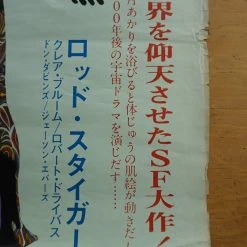 界を仰天させたSF大作!
月あかりを浴びると体じゅうの肌絵が動きだし
00年後の宇宙ドラマを演じだす……
ロッド・スタイガー
クレア・ブルーム/ロバート・ドライバス
ドン・ダビンズ/ジェーソン・エバーズ